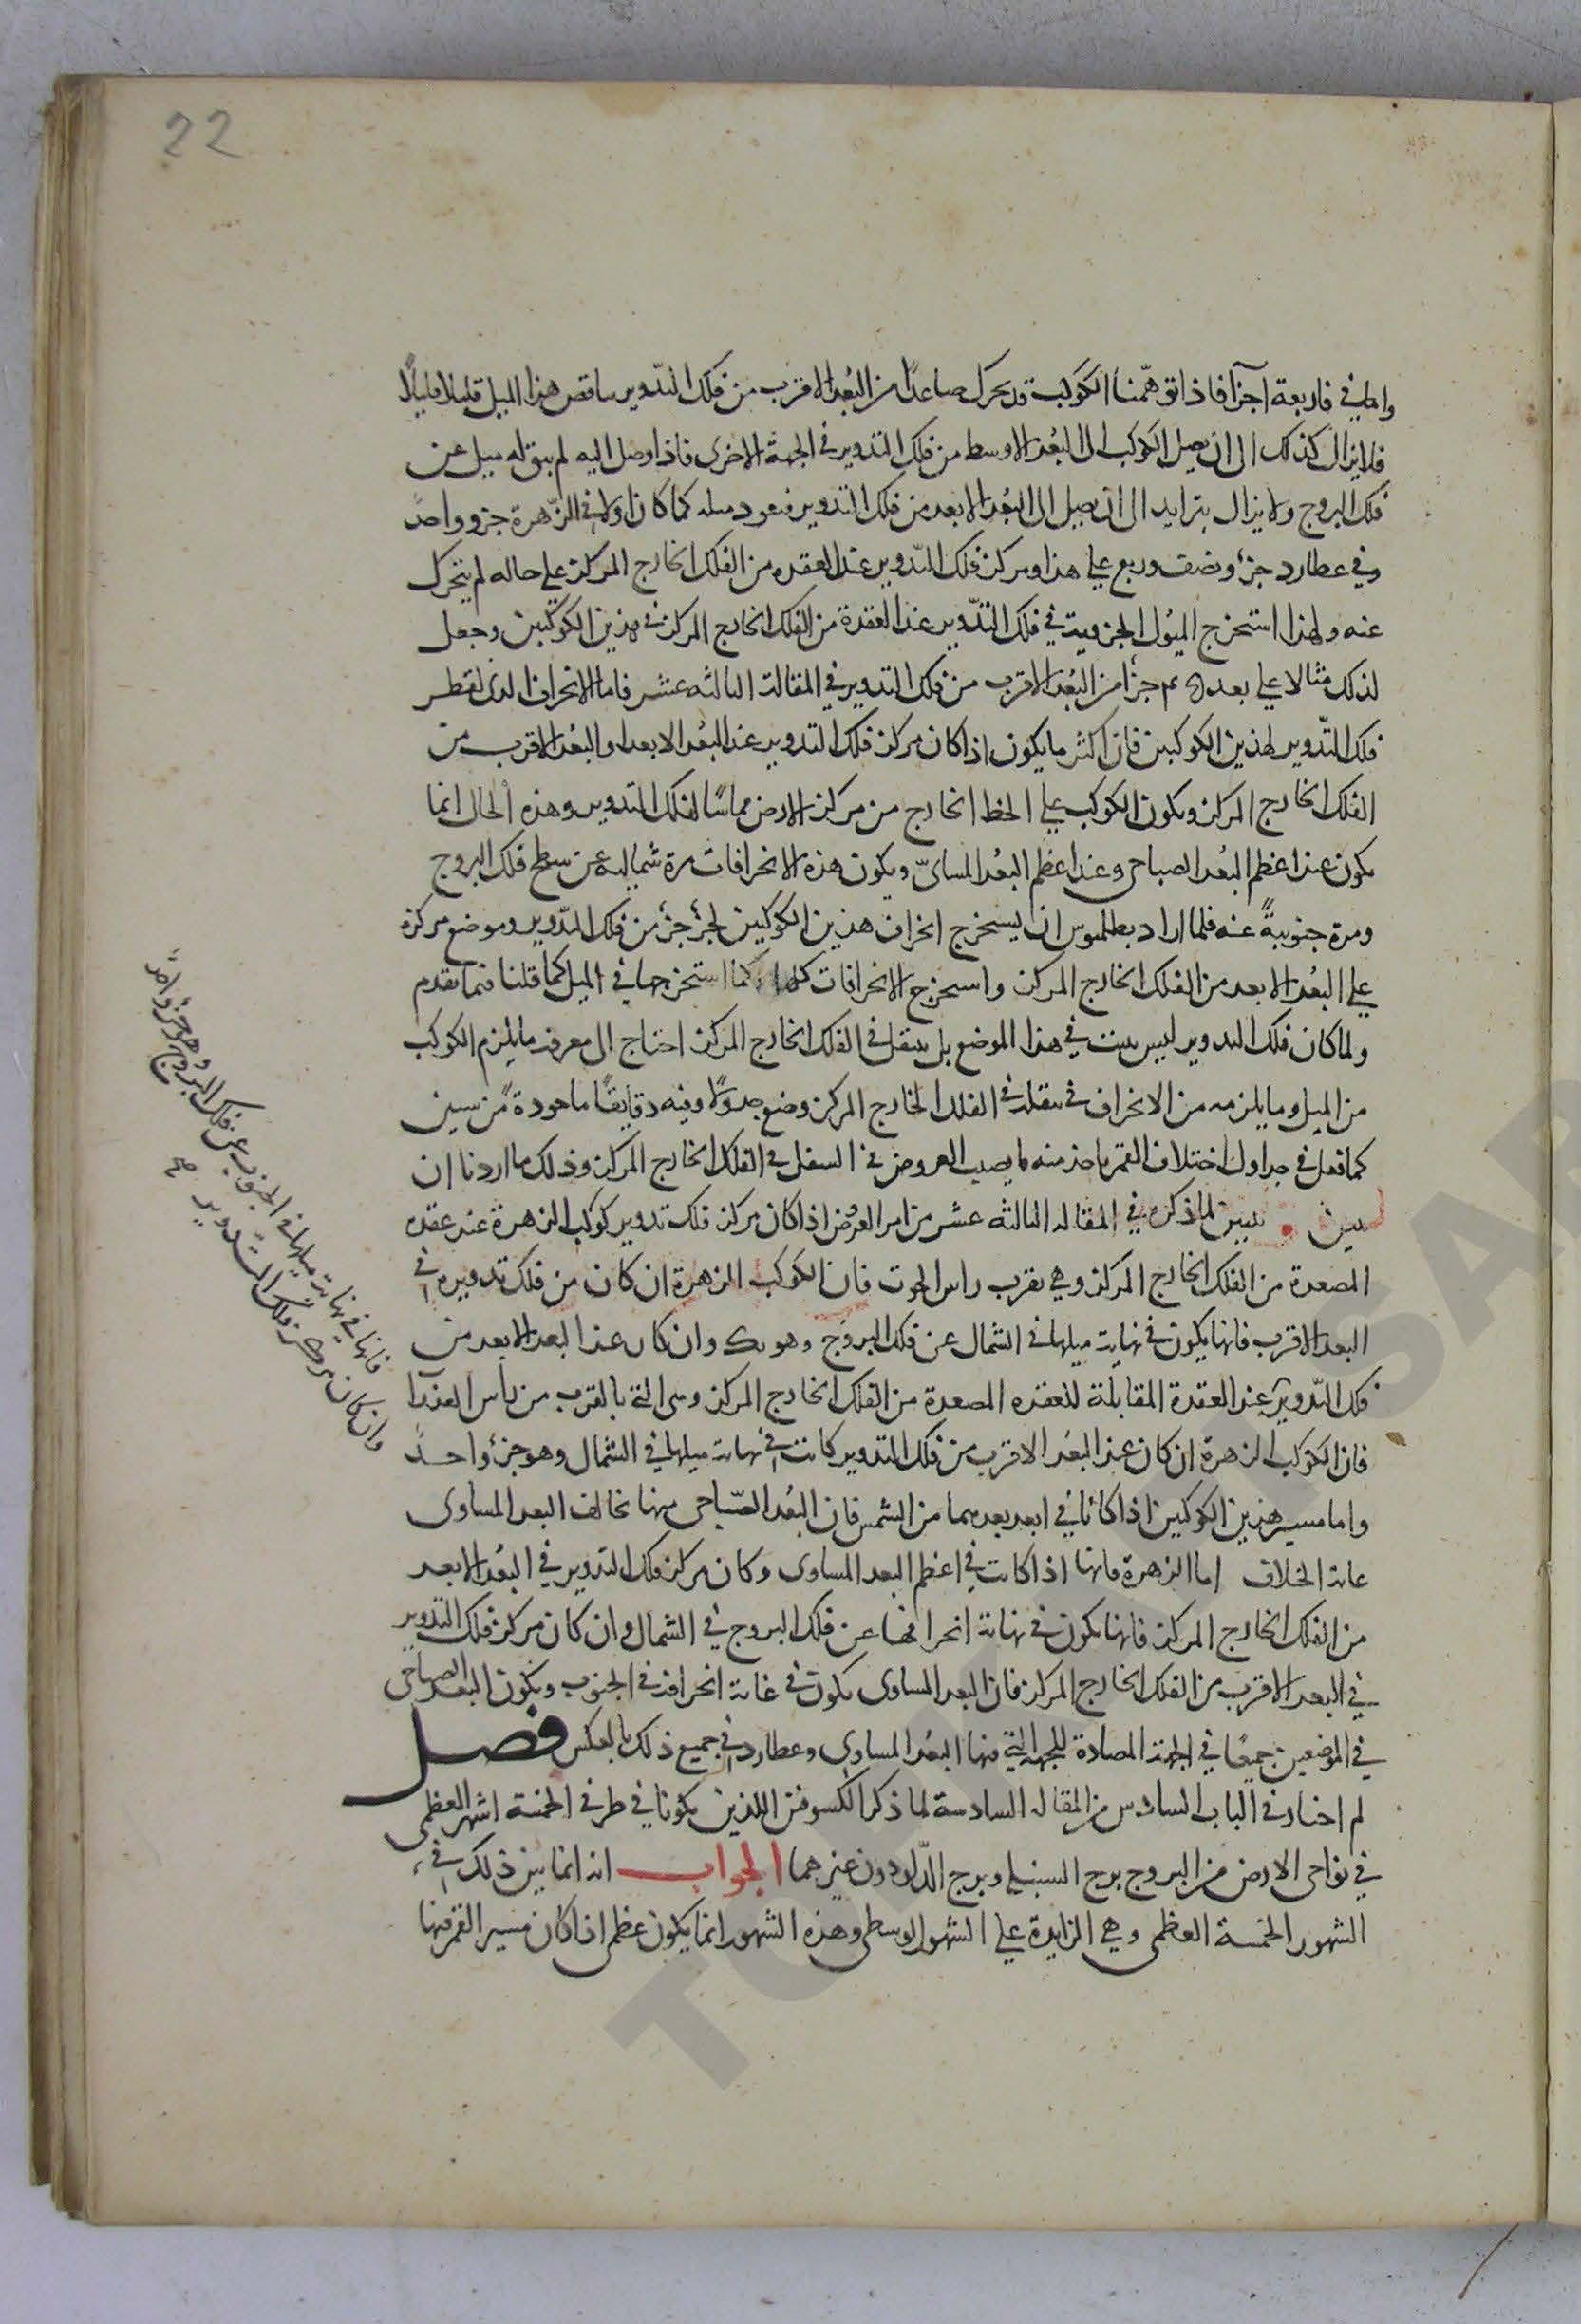 22
فاربعة اجزآ فاذا توهّمنا الكوكب قد تحرك صاعدًا من البُعد الاقرب من فلك التدوير ساقص هذا الميل قليلا قليلًا
فلايزال كذلك الى ان يصل الكوكب الى البُعد الاوسط من فلك التدوير في الجهة الاخرى فاذا وصل اليه لم يبق له ميل عن
فلك البروج ولايزال يتزايد الى ان يصل الى البُعد الابعد من فلك التدوير فيعود ميله كما كان اولا في الزّهرة جزو واحدً
وفي عطارد جزءٔ ونصف وربع على هذا ومركز فلك التّدوير عند العقده من الفلك الخارج المركز على حاله لم يتحرك
عنه ولهذا استخرج الميُول الجزويه في فلك التدّوير عند العقدة من الفلك الخارج المركز في هذين الكوكبين وجعل
لذلك مثالا على بعد جزءًا من البُعد الاقرب من فلك التدوير في المقالة الثالثه عشر فاما الانحراف الذى لقطر
فلك التّدوير لهذين الكوكبين فان اكثر ما يكون اذا كان مركز فلك التدوير عند البُعد الابعد او البُعد الاقرب من
الفلك الخارج المركز ويكون الكوكب على الخط الخارج من مركز الارض مماسًا لفلك التدوير وهذه الحال انما
يكون عند اعظم البُعد الصباحى وعند اعظم البُعد المسائىّ ويكون هذه الانحرافات مرة شماليه عن سطح فلك البروج
ومرة جنوبيةً عنه فلما اراد بطلميوس ان يستخرج انحراف هذين الكوكبين لجزءٔ جزءٔ من فلك التدّوير وموضع مركزه
على البُعد الابعد من الفلك الخارج المركز واستخرج الانحرافات كلها كما استخرجها في الميل كما قلنا فيما تقدم
ولما كان فلك التدوير ليس يثبت في هذا الموضع بل ينتقل في الفلك الخارج المركز احتاج الى معرفة ما يلزم الكوكب
من الميل وما يلزمه من الانحراف في تنقله في الفلك الخارج المركز وضع جدولًا وفيه دقايقًا ماخوذة من
كما فعل في جداول اختلاف القمر ياخذ منه ما يصيب العروض في السفل في الفلك الخارج المركز وذلك ما اردنا ان
نبين لما ذكره في المقاله الثالثه عشر من امر العرُض اذا كان مركز فلك تدوير كوكب الزهرة عند عقده
المصعدة من الفلك الخارج المركز وهي بقرب راس الحوت فان الكوكب الزهرة ان كان من فلك تدويره في
البعد الاقرب فانها يكون في نهاية ميلها في الشمال عن فلك البروج وهو وان كان عند البعد الابعد من
فلك التّدوير عند العقدة المقابلة للعقده المصعدة من الفلك الخارج المركز وهى التى بالقرب من راس العذرا
فان الكوكب الزهرة ان كان عند البُعد الاقرب من فلك التدوير كانت في نهاية ميلها في الشمال وهو جزءٔ واحدً
واما مسير هذين الكوكبين اذا كانا في ابعد بعديهما من الشمس فان البُعد الصّباحى منها يخالف البعد المساوى
غاية الخلاف اما الزهرة فانها اذا كانت في اعظم البعد المساوى وكان مركز فلك التدوير في البُعد الابعد
من الفلك الخارج المركز فانها يكون في نهاية انحرافها عن فلك البروج في الشمال وان كان مركز فلك التدوير
في البعد الاقرب من الفلك الخارج المركز فان البعد المساوى يكون في غاية انحرافه في الجنوب ويكون البعد الصباحى
في الموضعين جميعًا في الجهة المضادة للجهة التي فيها البعُد المساوى وعطارد في جميع ذلك بالعكس فصل
لم اختار في الباب السادس من المقاله السادسة لما ذكر الكسوفين اللذين يكونان في طرفي الخمسة اشهر العظمى
في نواحى الارض من البروج برج السنبلة وبرج الدّلو دون غيرهما الجواب انه انما بين ذلك في
الشهور الخمسة العظمى وهي الزايدة على الشهور الوسطى وهذه الشهور انما يكون عظمى اذا كان مسير القمر فيها
فانها في نهاية ميلها في الجنوب عن فلك البروج وهو جزو واحدً
وان كان مركز فلك التدوير صح